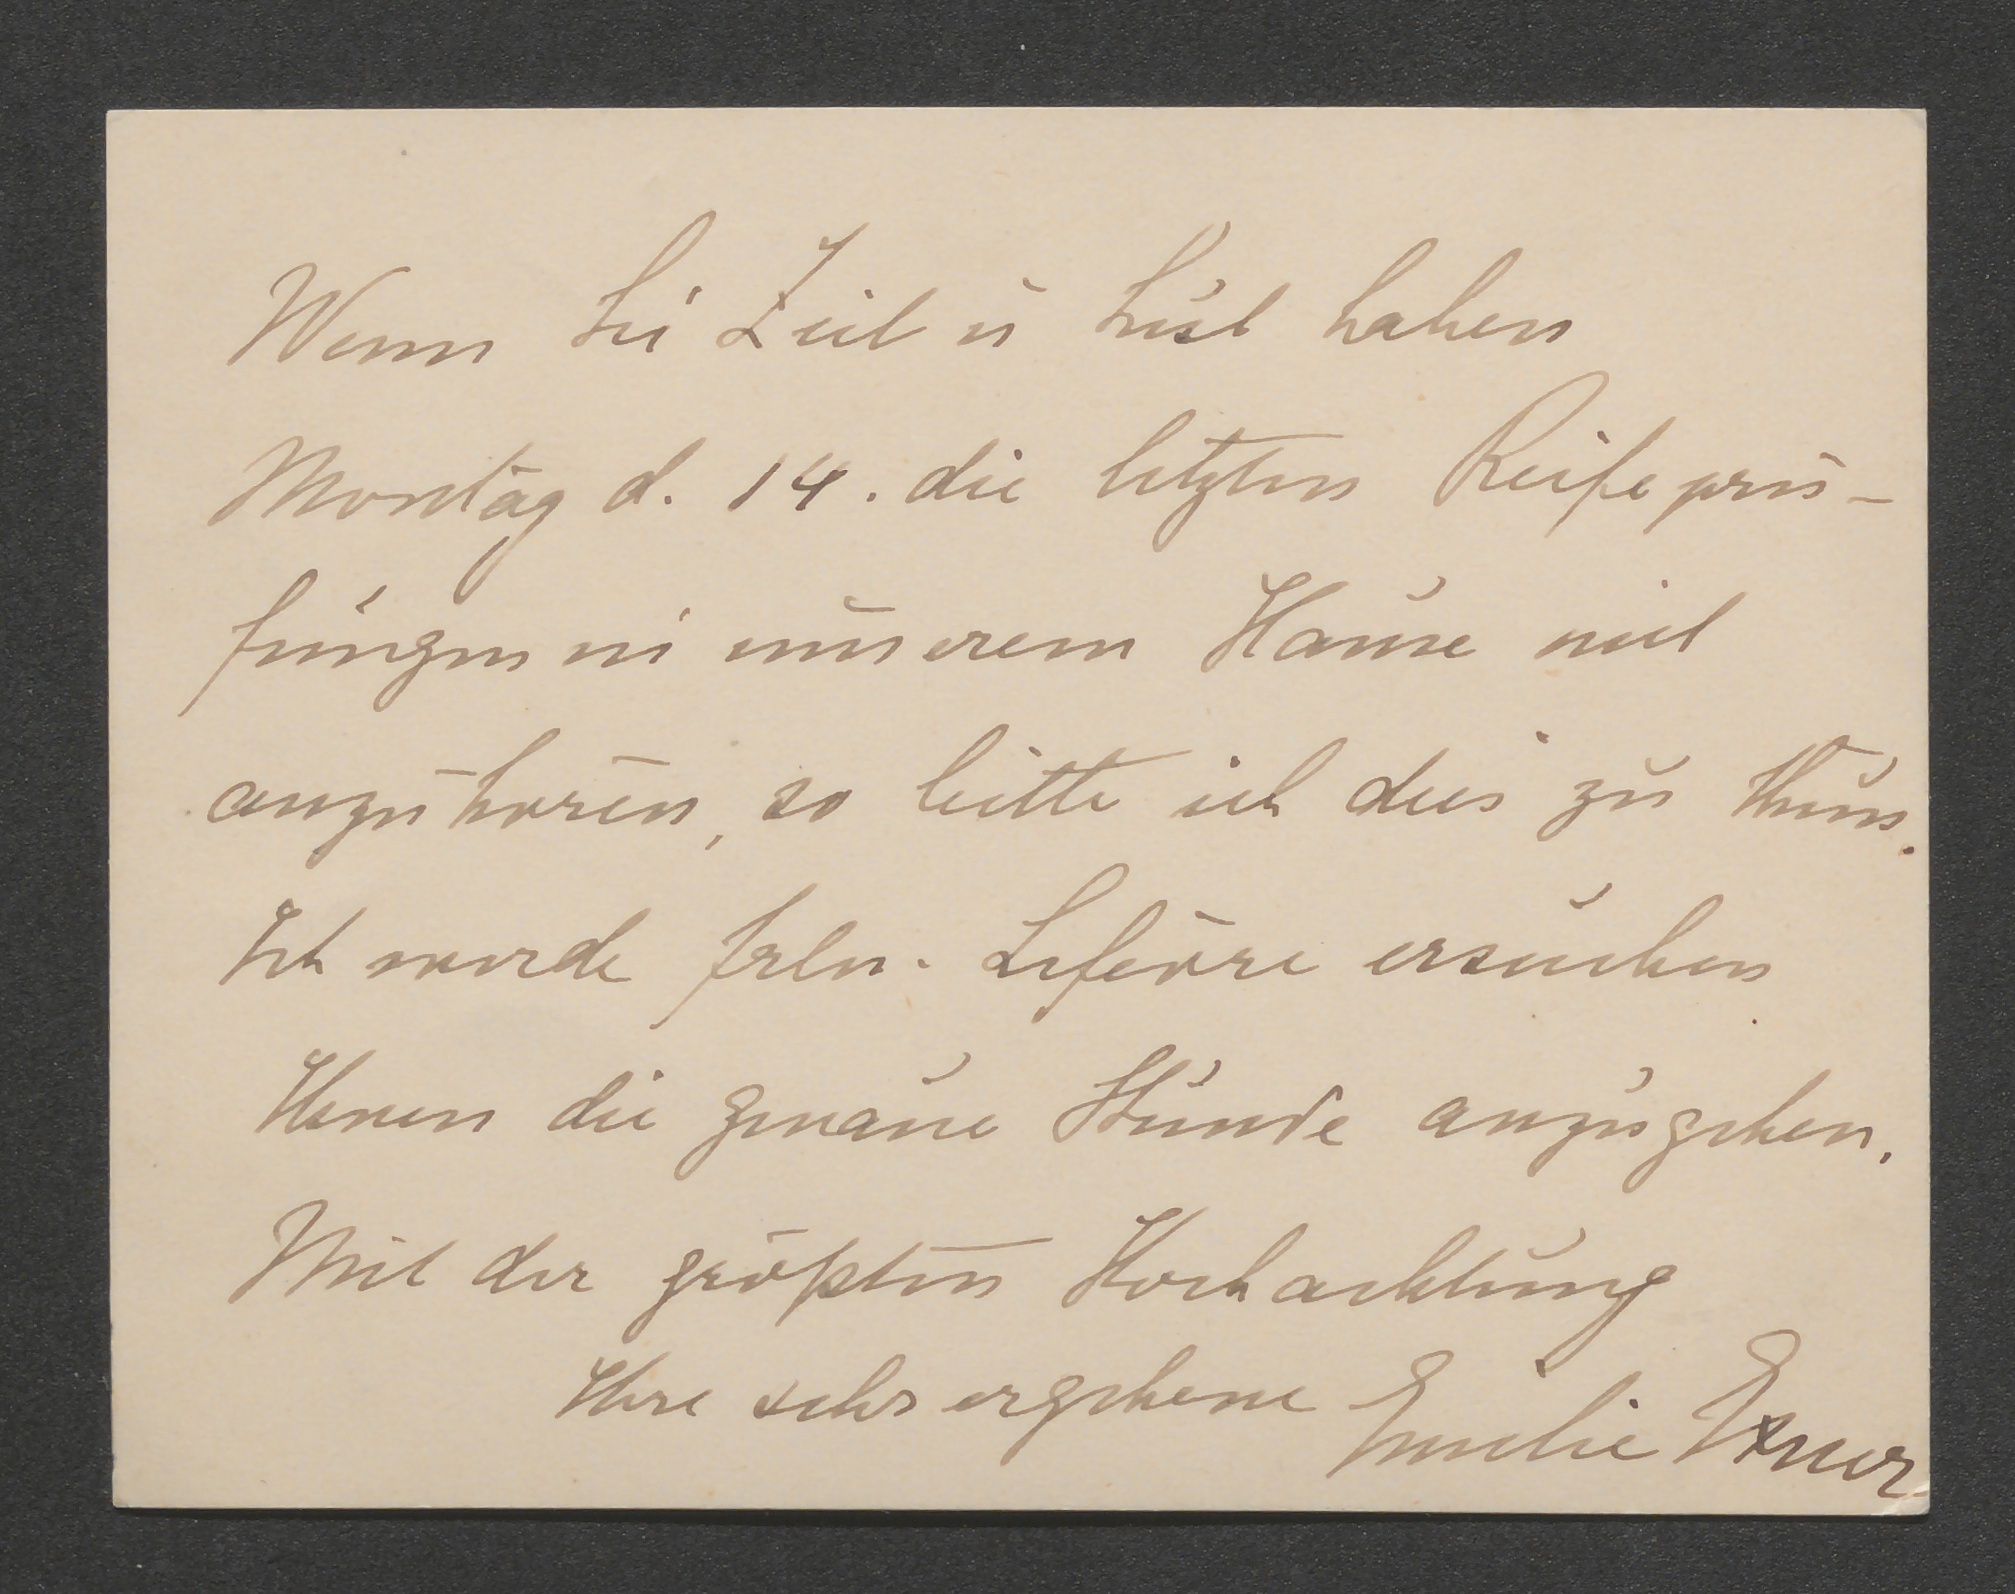 Wenn Sie Zeit u Lust haben
Montag d. 14. die letzten Reifeprü-
fungen in unserem Hause mit
anzuhören, so bitte ich dies zu thun.
Ich werde Frln. Lefèvre ersuchen
Ihnen die genaue Stunde anzugeben.
Mit der größten Hochachtung
Ihre sehr ergebene Emilie Exner